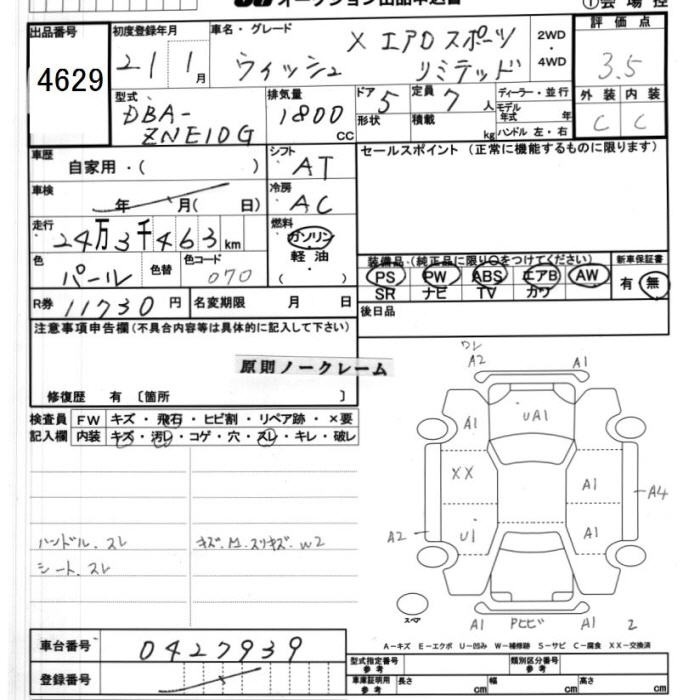 オークション出品申込書
①会場控
出品番号 4629
初度登録年月 21 1月
車名・グレード X エアロスポーツ
ウィッシュ リミテッド
2WD・4WD
評価点 3.5
外装 C 内装 C
型式 DBA-
ZNE10G
排気量 1800 CC
ドア 5 形状
定員 7人 積載 kg
ディーラー・並行
モデル年式 年
ハンドル 左・右
車歴 自家用・( )
シフト AT
セールスポイント (正常に機能するものに限ります)
車検 年 月( 日)
冷房 AC
走行 24万3千463km
燃料 ガソリン
軽油
( ・ )
色 パール 色替 色コード 070
装備品 (純正品に限り○をつけてください) 新車保証書
PS PW ABS エアB AW 有 無
SR ナビ TV カワ
R券 11730円 名変期限 月 日
後日品
注意事項申告欄 (不具合内容等は具体的に記入して下さい)
原則ノークレーム
修復歴 有 〔箇所 〕
検査員 FW キズ・飛石・ヒビ割・リペア跡・×要
記入欄 内装 キズ・汚レ・コゲ・穴・スレ・キレ・破レ
ワレ
A2 A1
A1 UA1 A1
XX A1 A4
A2 U1 A1
ハンドル.スレ
シート.スレ
スペア
A1 A1 2
A-キズ E-エクボ U-凹み W-補修跡 S-サビ C-腐食 XX-交換済
車台番号 0427939
登録番号
型式指定番号 参考 類別区分番号 参考
車庫証明用 参考 長さ cm 幅 cm 高さ cm